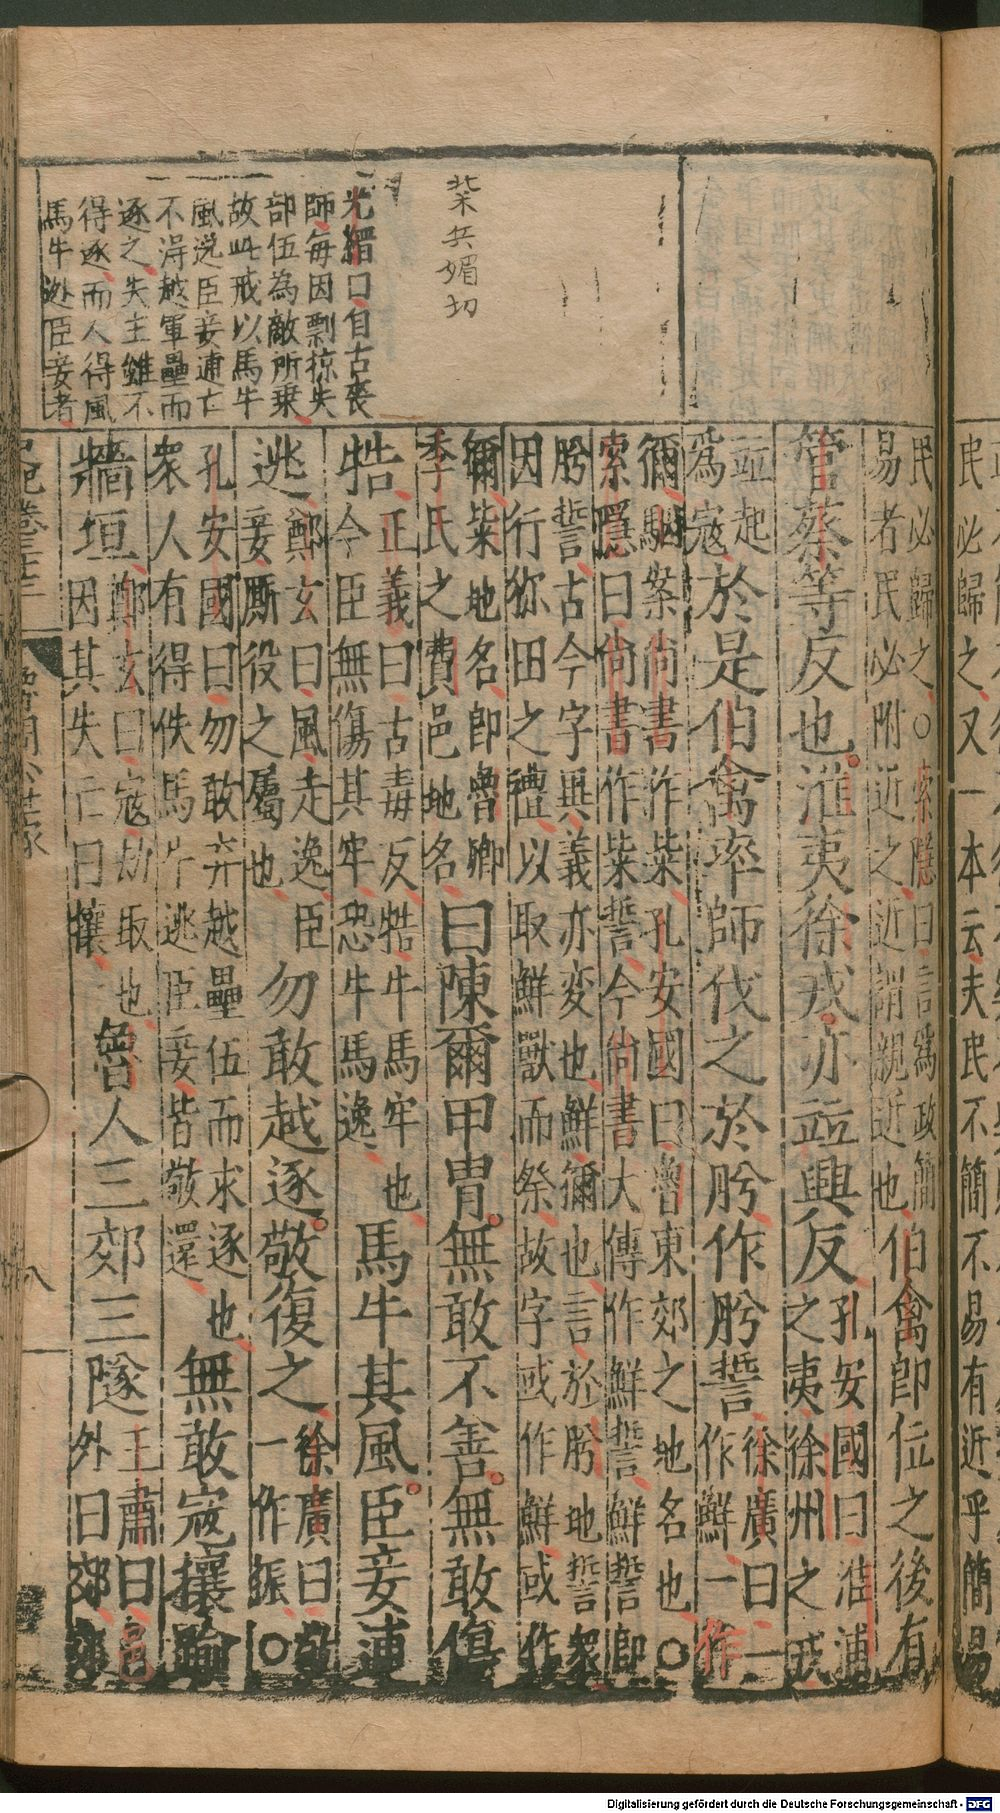 民必歸之又一本云夫民不簡不易有近乎簡易
柴兵媚切
光縉曰自古喪
師每因剽掠失
部伍為敵所乗
故此戒以馬牛
風逸臣妾逋亡
不得越軍壘而
逐之失主雖不
得逐而人得風
馬牛逃臣妾者
民必歸之○索隱曰言爲政簡
易者民必附近之近謂親近也
伯禽即位之後有
管蔡等反也淮夷徐戎亦竝興反
孔安國曰淮浦
之夷徐州之戎
竝起
爲寇
於是伯禽率師伐之於肹作肹誓
徐廣曰一
作鮮一作
獮駰案尚書作柴孔安國曰魯東郊之地名也○
索隱曰尚書作柴誓今尚書大傳作鮮誓鮮誓即
肹誓古今字異義亦変也鮮獮也言於肹地誓衆
因行狝田之禮以取鮮獸而祭故字或作鮮或作
獮柴地名即魯卿
季氏之費邑地名
曰陳爾甲冑無敢不善無敢傷
牿
正義曰古毒反牿牛馬牢也
牿令臣無傷其牢恐牛馬逸
馬牛其風臣妾逋
逃
鄭玄曰風走逸臣
妾厮役之屬也
勿敢越逐敬復之
徐廣曰敬
一作振○
孔安國曰勿敢弃越壘伍而求逐也
衆人有得佚馬牛逃臣妾皆敬還
無敢寇攘踰
墻垣
鄭玄曰寇劫取也
因其失亡曰攘
魯人三郊三隧
王肅曰邑
外曰郊郊
史記卷三十三
魯周公世家
八
Digitalisierung gefördert durch die Deutsche Forschungsgemeinschaft - DFG